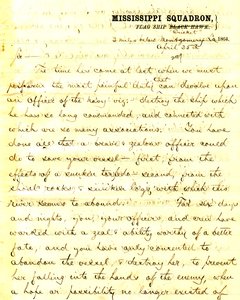 MISSISSIPPI SQUADRON,
FLAG SHIP BLACK HAWK
Cricket
3 miles below Montgomery La 186
April 25th
The time has come at last when we must
perform the most painful duty that can devolve upon
an officer of the Navy viz: destroy the ship which
he has so long commanded, and connected with
which are so many associations. You have
done all that a brave & zealous officer could
do to save your vessel - first, from the
effects of a sunken torpedo - second, from the
shoal rocks & sunken logs with which this
river seems to abound. For six days
and nights, you, your officers, and crew have
worked with a zeal & ability worthy of a better
fate, and you have only consented to
abandon the vessel, & destroy her, to prevent
her falling into the hands of the enemy, when
a hope or possibility no longer existed of